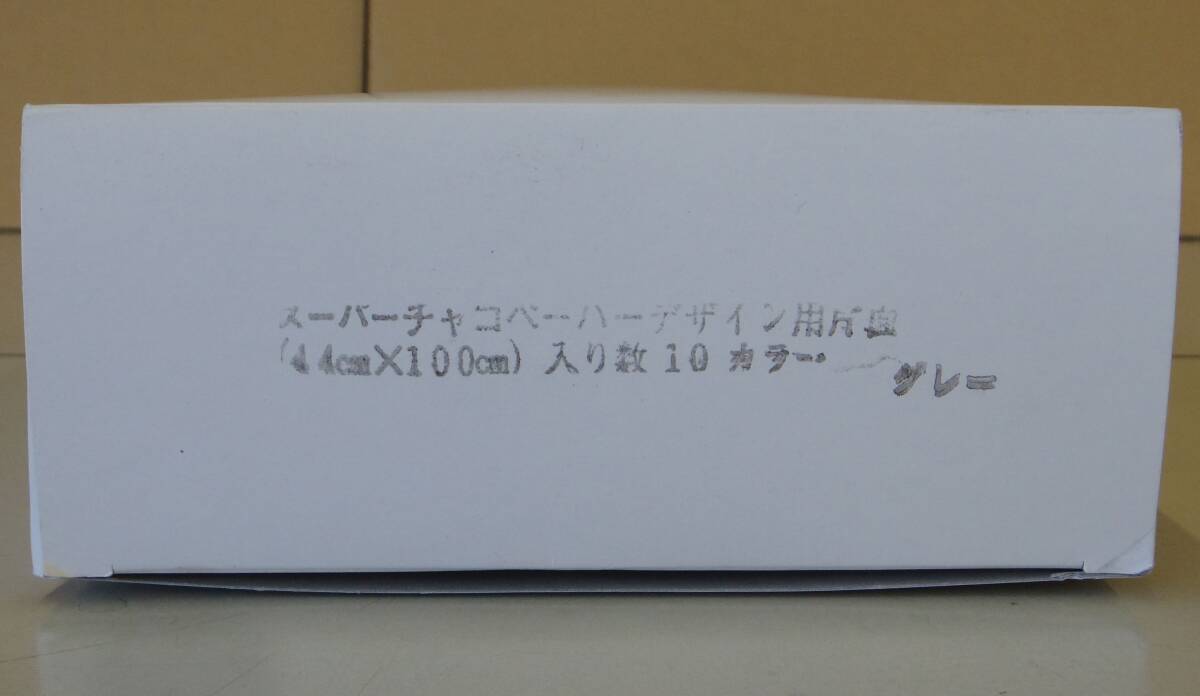 スーパーチャコペーパーデザイン用片面
(44cm×100cm) 入り数10 カラー グレー